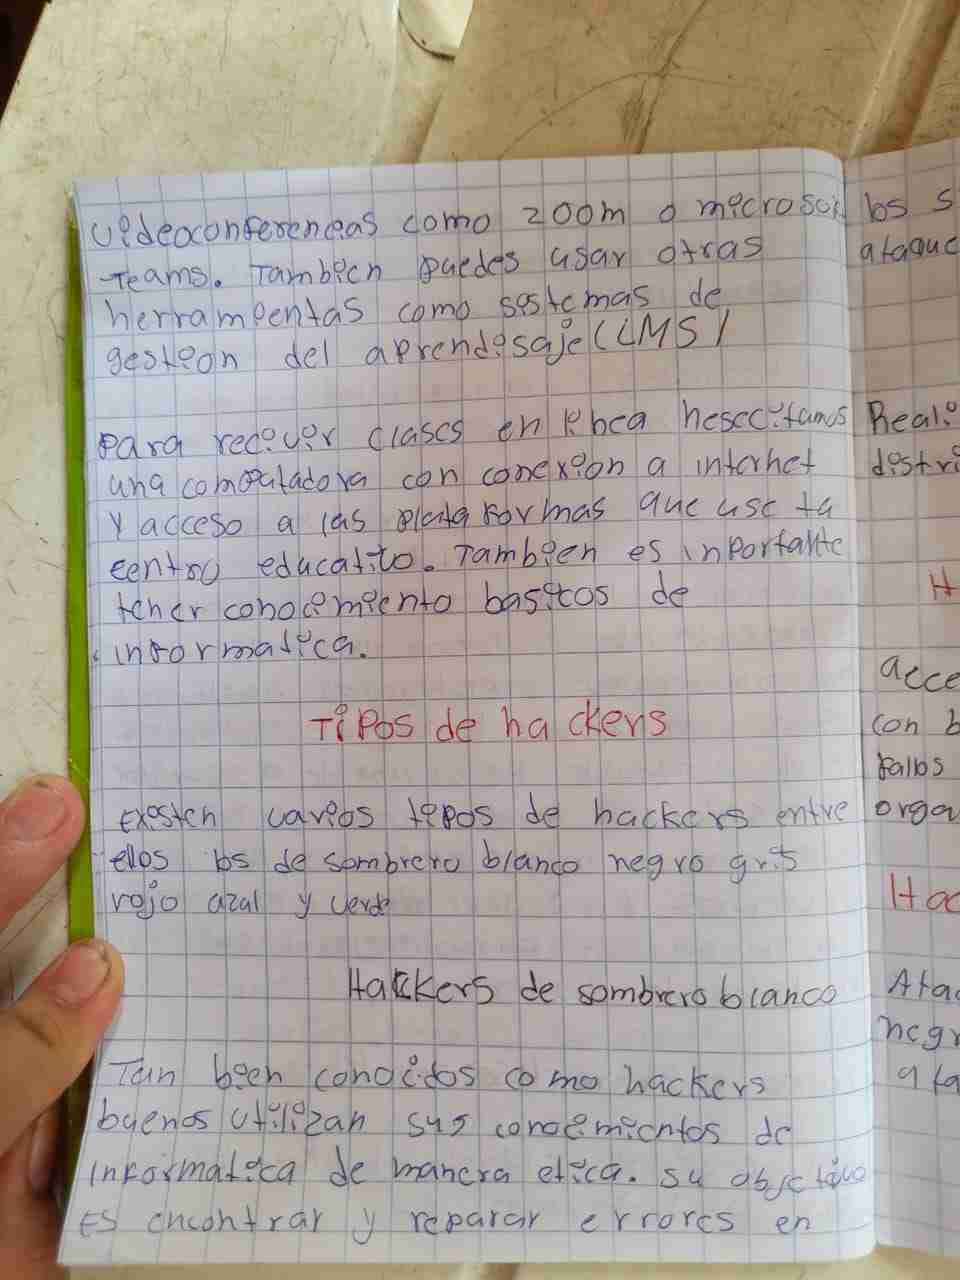 videoconferencias como zoom o microsof
Teams. Tambien puedes usar otras
herramientas como sistemas de
gestion del aprendisaje (LMS)
para reciuir clases en linea nesecitamos
una computadora con conexion a internet
y acceso a las plataformas que use tu
centro educativo. Tambien es inportante
tener conocimiento basicos de
informatica.
Tipos de hackers
existen varios tipos de hackers entre
ellos los de sombrero blanco negro gris
rojo azul y verde
Hackers de sombrero blanco
Tan bien conocidos como hackers
buenos utilizan sus conocimientos de
informatica de manera etica. su objetivo
Es encontrar y reparar errores en
los s
ataque
Reali
distri
H
acce
con b
fallos
orga
Hac
Atac
negr
ata